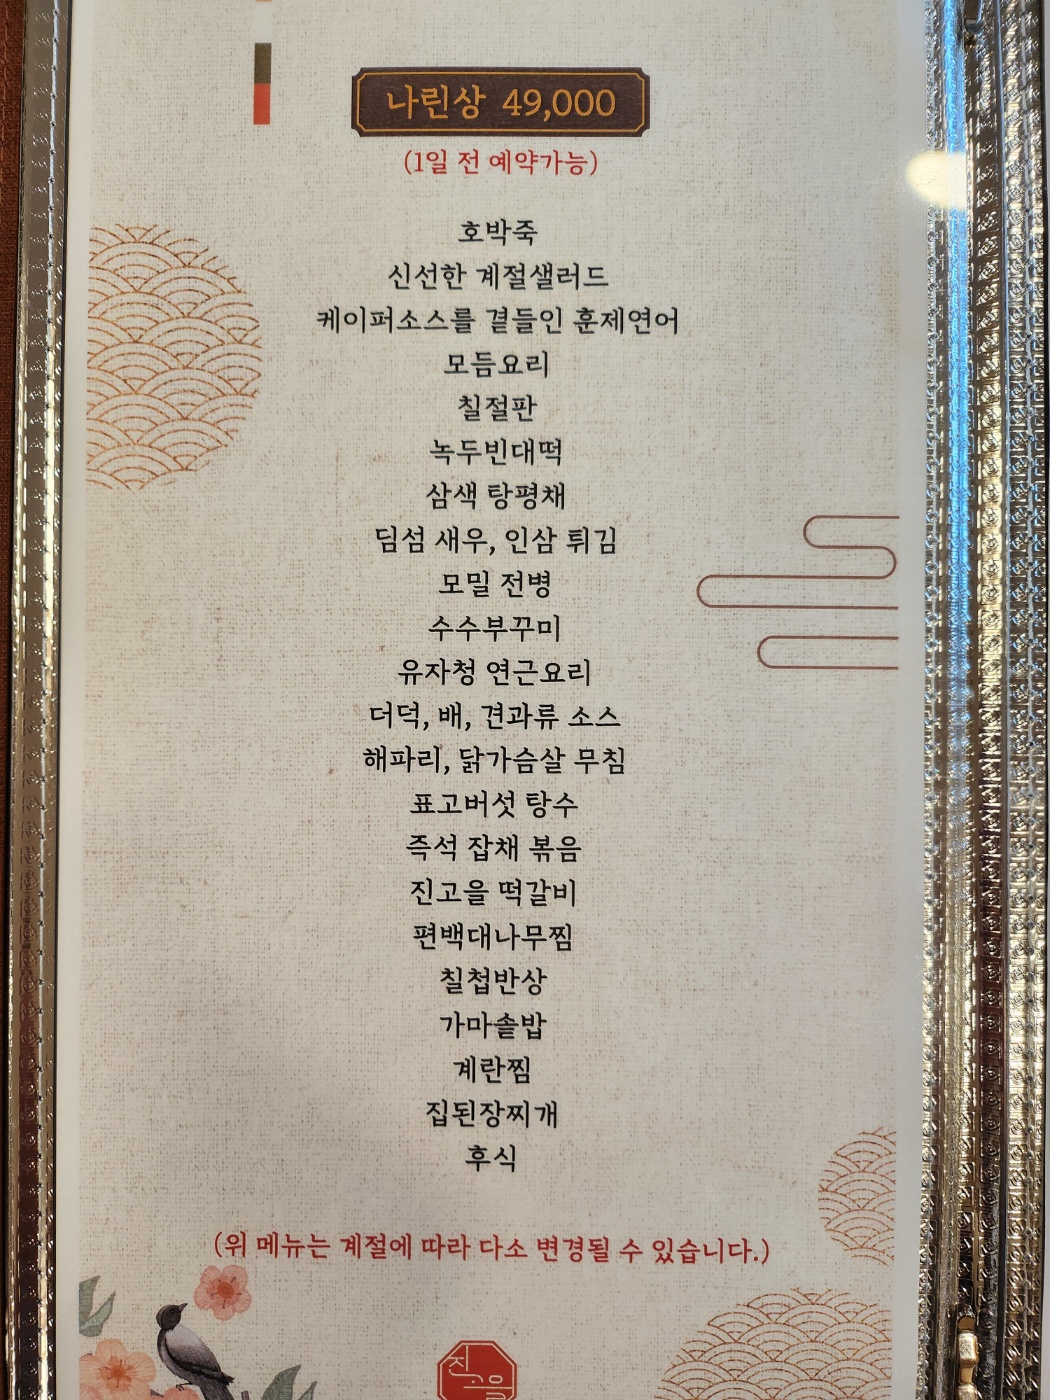 나린상 49,000
(1일 전 예약가능)
호박죽
신선한 계절샐러드
케이퍼소스를 곁들인 훈제연어
모듬요리
칠절판
녹두빈대떡
삼색 탕평채
딤섬 새우, 인삼 튀김
모밀 전병
수수부꾸미
유자청 연근요리
더덕, 배, 견과류 소스
해파리, 닭가슴살 무침
표고버섯 탕수
즉석 잡채 볶음
진고을 떡갈비
편백대나무찜
칠첩반상
가마솥밥
계란찜
집된장찌개
후식
(위 메뉴는 계절에 따라 다소 변경될 수 있습니다.)